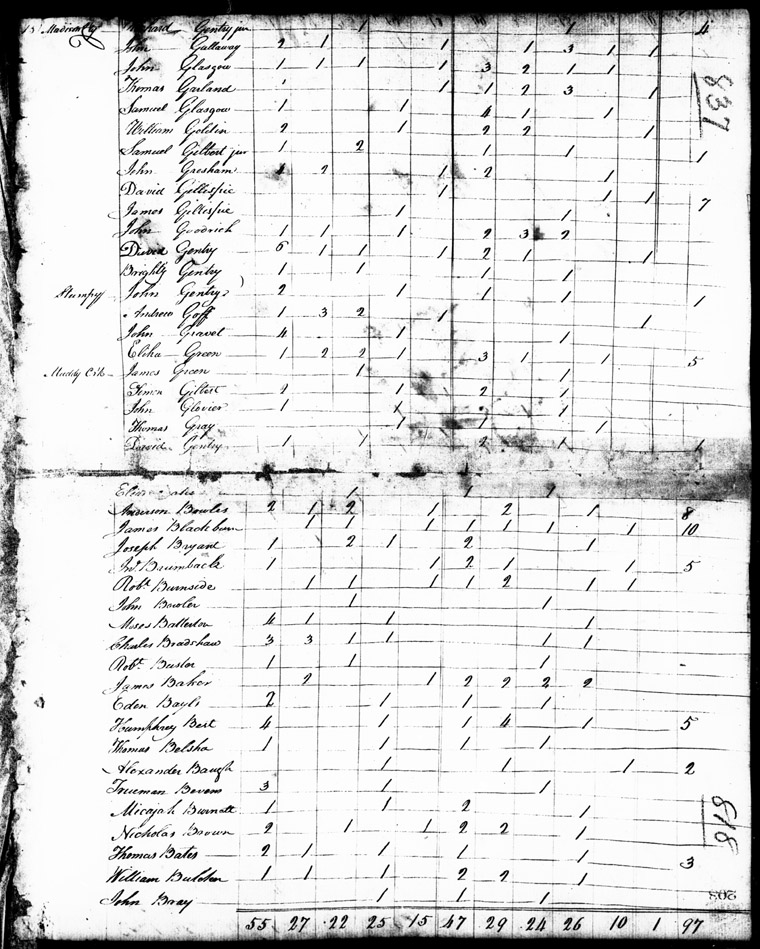 Madison Cty Richard Gentry jun 1 1 4
John Gallaway 2 1 1 1 3 1 1
John Glasgow 1 1 1 1 3 2 1 1
Thomas Garland 1 1 1 2 3 1
Samuel Glasgow 1 1 4 1 1
William Goldin 2 1 2 2 1
Samuel Gilbert jun 1 2 1 1 1
John Gresham 2 1 2 1
David Gillespie 1 1 1 7
James Gillespie 1 1
John Goodrich 1 1 1 2 3 2
David Gentry 6 1 1 1 2 1 1
Brightz Gentry 1 1 1 1
John Gentry 2 1 1 1 1
Andrew Goff 1 3 2 1 1
John Gravet 4 1 1
Eliha Green 1 2 2 1 3 1 1 5
Muddy Crk James Green 1 1
Gilbert 2 1 2 1
John Glovier 1 1 1
Thomas Gray 1 1 1
David Gentry 1 1 2 1 1
837
1 1 1
Anderson Bowles 2 1 2 1 2 1 8
James Blackburn 1 1 1 1 1 1 1 10
Joseph Bryant 1 2 1 2 1
Jno Brumback 1 1 2 1 1 5
Robt Burnside 1 1 1 1 2 1 1
John Bowler 1 1
Moses Batterton 4 1 1 1
Charles Bradshaw 3 3 1 1 1 1
Robt Buster 1 1 1
James Baker 2 1 2 2 2 2
Eden Bayls 2 1 1 1
Humphrey Best 4 1 1 4 1 5
Thomas Belsha 1 1 1 1
Alexander Baugh 1 1 1 2
Trueman Bevens 3 1 1
Micajah Burnett 1 1 2 1
Nicholas Brown 2 1 1 2 2 1
Thomas Bates 2 1 1 1 1 3
William 1 1 1 2 2 1
John Bray 1 1 1
818
203
55 27 22 25 15 47 29 24 26 10 1 97